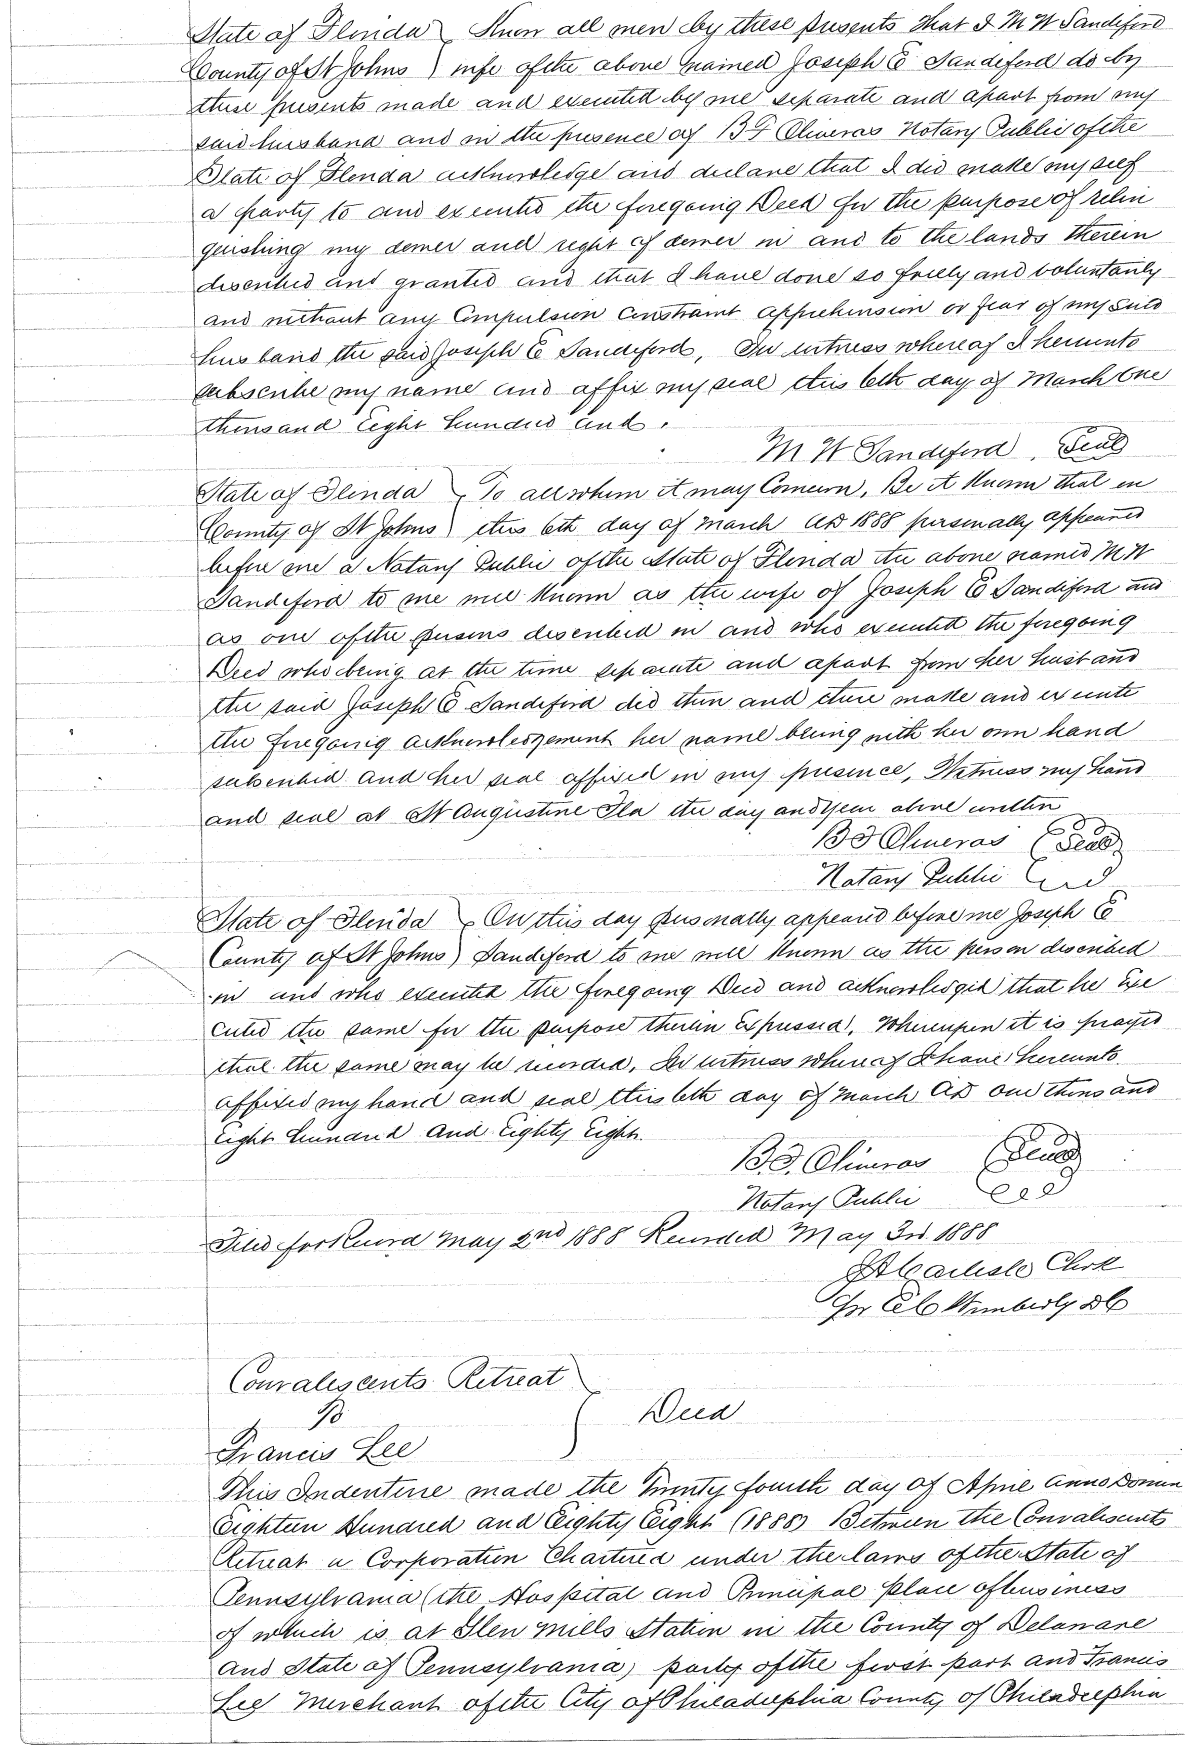 State of Florida } Know all men by these presents that I M W Sandiford
County of St Johns } wife of the above named Joseph E Sandeford do by
these presents made and executed by me separate and apart from my
said husband and in the presence of B F Oliveros Notary Public of the
State of Florida acknowledge and declare that I did make myself
a party to and executed the foregoing Deed for the purpose of relin
quishing my dower and right of dower in and to the lands therein
described and granted and that I have done so freely and voluntarily
and without any Compulsion Constraint apprehension or fear of my said
husband the said Joseph E Sandeford, In witness whereof I hereunto
subscribe my name and affix my seal this 6th day of March One
thousand Eight hundred and.
M W Sandeford, Seal
State of Florida } To all whom it may Concern, Be it Known that on
County of St Johns } this 6th day of March AD 1888 personally appeared
before me a Notary Public of the State of Florida the above named M W
Sandeford to me well Known as the wife of Joseph E Sandeford and
as one of the persons described in and who executed the foregoing
Deed who being at the time separate and apart from her husband
the said Joseph E Sandeford did then and there make and execute
the foregoing acknowledgement her name being with her own hand
subscribed and her seal affixed in my presence, Witness my hand
and seal at St Augustine Fla the day and year above written
B F Oliveros (Seal)
Notary Public
State of Florida } On this day personally appeared before me Joseph E
County of St Johns } Sandeford to me well Known as the person described
in and who executed the foregoing Deed and acknowledged that he Exe
cuted the same for the purpose therein Expressed, Whereupon it is prayed
that the same may be recorded, In witness whereof I have hereunto
affixed my hand and seal this 6th day of March AD one thousand
Eight hundred and Eighty Eight.
B. F. Oliveros (Seal)
Notary Public
Filed for Record May 2nd 1888 Recorded May 3rd 1888
Carlisle Clerk
Wimberly DC
Convalescents Retreat
To } Deed
Francis Lee
This Indenture made the Twenty fourth day of April Anno Domini
Eighteen Hundred and Eighty Eight (1888) Between the Convalescents
Retreat a Corporation Chartered under the laws of the State of
Pennsylvania (the Hospital and Principal place of business
of which is at Glen Mills Station in the County of Delaware
and State of Pennsylvania) party of the first part and Francis
Lee Merchant of the City of Philadelphia County of Philadelphia